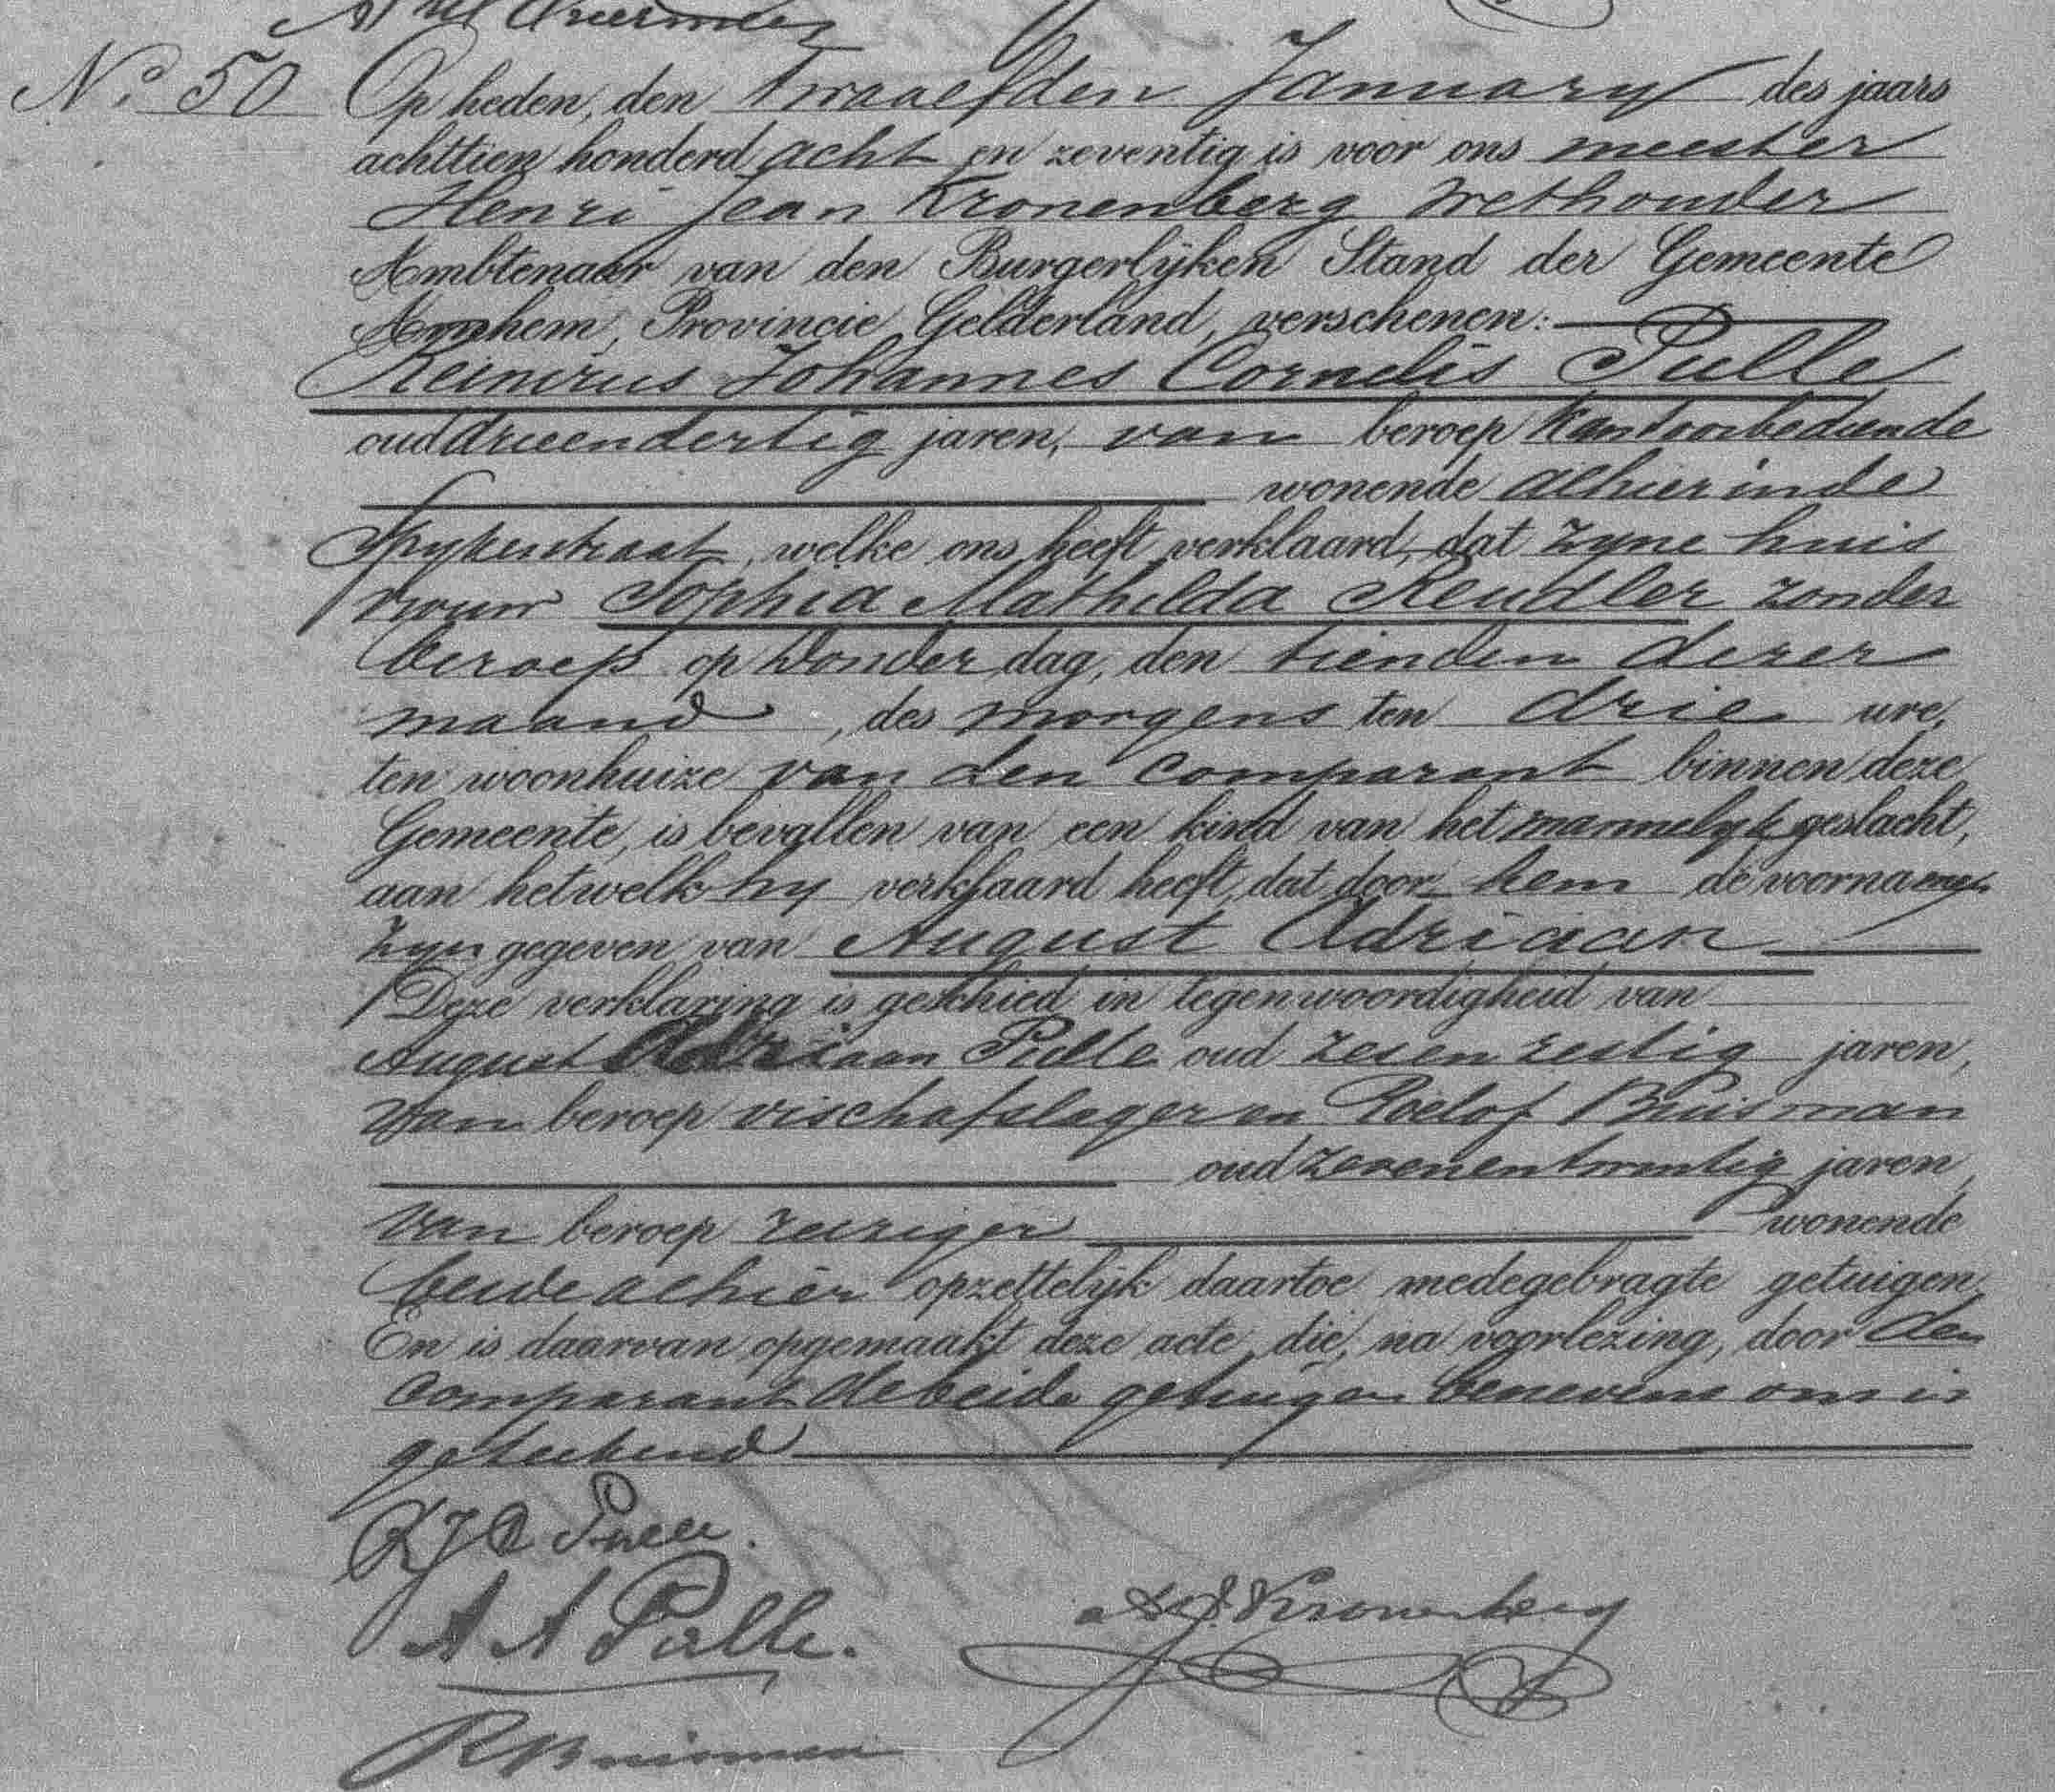 No. 50 Op heden, den twaalfden January des jaars
achttien honderd acht en zeventig is voor ons meester
Henri Jean Kronenberg wethouder
Ambtenaar van den Burgerlijken Stand der Gemeente
Arnhem, Provincie Gelderland, verschenen:
Reinirus Johannes Cornelis Pulle
oud drieendertig jaren, van beroep kantoorbediende
wonende alhier in de
Spykerstraat, welke ons heeft verklaard, dat zyne huis
vrouw Sophia Mathilda Reudler zonder
beroep op Donderdag, den tienden dezer
maand, des morgens ten drie ure,
ten woonhuize van den comparant binnen deze
Gemeente, is bevallen van een kind van het mannelyk geslacht,
aan hetwelk hy verklaard heeft, dat door hem de voornamen
zyn gegeven van August Adriaan
Deze verklaring is geschied in tegenwoordigheid van
August Adriaan Pulle oud zesenzestig jaren,
van beroep vischafslager en Roelof Buisman
oud zevenentwintig jaren,
van beroep reiziger wonende
beide alhier opzettelijk daartoe medegebragte getuigen.
En is daarvan opgemaakt deze acte, die, na voorlezing, door den
comparant de beide getuigen benevens ons is
geteekend
RJC Pulle.
A A Pulle.
H J Kronenberg
R Buisman